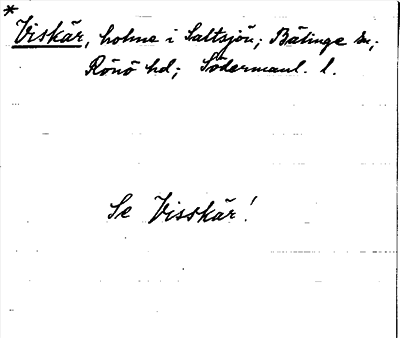 *
Viskär, holme i Saltsjön; Bälinge sn;
Rönö hd; Södermanl. l.
Se Visskär!